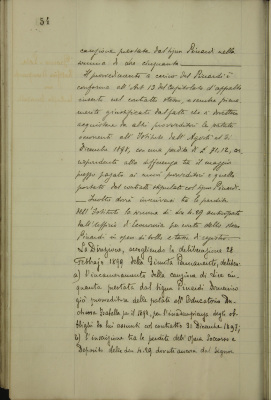 54
cauzione prestata dal signor Pinardi nella
somma di lire cinquanta.
Il provvedimento a carico del Pinardi è
conforme all'Art. 13 del Capitolato d'appalto
inserto nel contratto stesso, e sembra piena-
mente giustificato dal fatto che si dovettero
acquistare da altri provveditori le
occorrenti all'Istituto dall'Agosto al
Dicembre 1898, con una perdita di £ 71,12, cor
rispondente alla differenza tra il maggior
prezzo pagato ai nuovi provveditori e quello
portato dal contratto stipulato col signor Pinardi.
Inoltre dovrà iscriversi tra le perdite
dell'Istituto la somma di Lire 4.29 anticipata
dall'ufficio d'Economia per conto dello stesso
Pinardi in spese di bollo e tassa di registro.
La Direzione, accogliendo la deliberazione 28
Febbraio 1899 della Giunta Permanente, delibera:
a) l'incameramento della cauzione di Lire cin
quanta prestata dal signor Pinardi Domenico
già provveditore delle patate all'Educatorio Du-
chessa Isabella per il 1898, per l'inadempienza degli ob-
blighi da lui assunti col contratto 31 Dicembre 1897;
b) l'iscrizione tra le perdite dell'Opera Soccorso e
Deposito delle lire 4.29 dovute ancora dal Signor